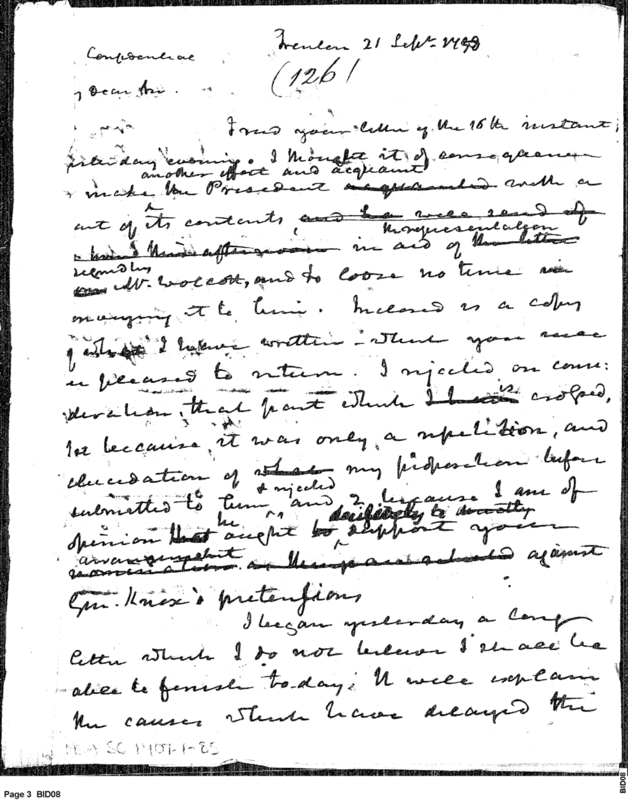 Trenton 21 Sepr. 1798
Confidential
(126)
Dear Sir.
I recd your letter of the 16th instant,
yesterday evening. I thought it of consequence
another effort and acquaint
make the President acquainted with a
out of its contents, and I a well send of
the representation
this afternoon in aid of the letter
signed by
Mr. Wolcott, and to loose no time in
conveying it to him. Inclosed is a copy
of what I have written – which you will
be pleased to return. I rejected on consi:
deration, that part which I have is crossed,
1st because, it was only, a repetition, and
elucidation of what my proposition before
& rejected
submitted to him and 2 because I am of
he decidedly to directly
opinion that ought to support your
arrangement
nomination against
Gen. Knox's pretensions
I began yesterday a long
letter which I do not believe I shall be
able to finish to-day; It will explain
the causes which have delayed the
Page 3 BID08
BID08